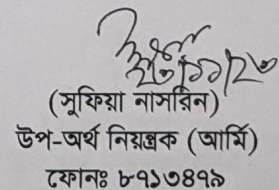 (সুফিয়া নাসরিন)
উপ-অর্থ নিয়ন্ত্রক (আর্মি)
ফোনঃ ৮৭১৩৪৭৯